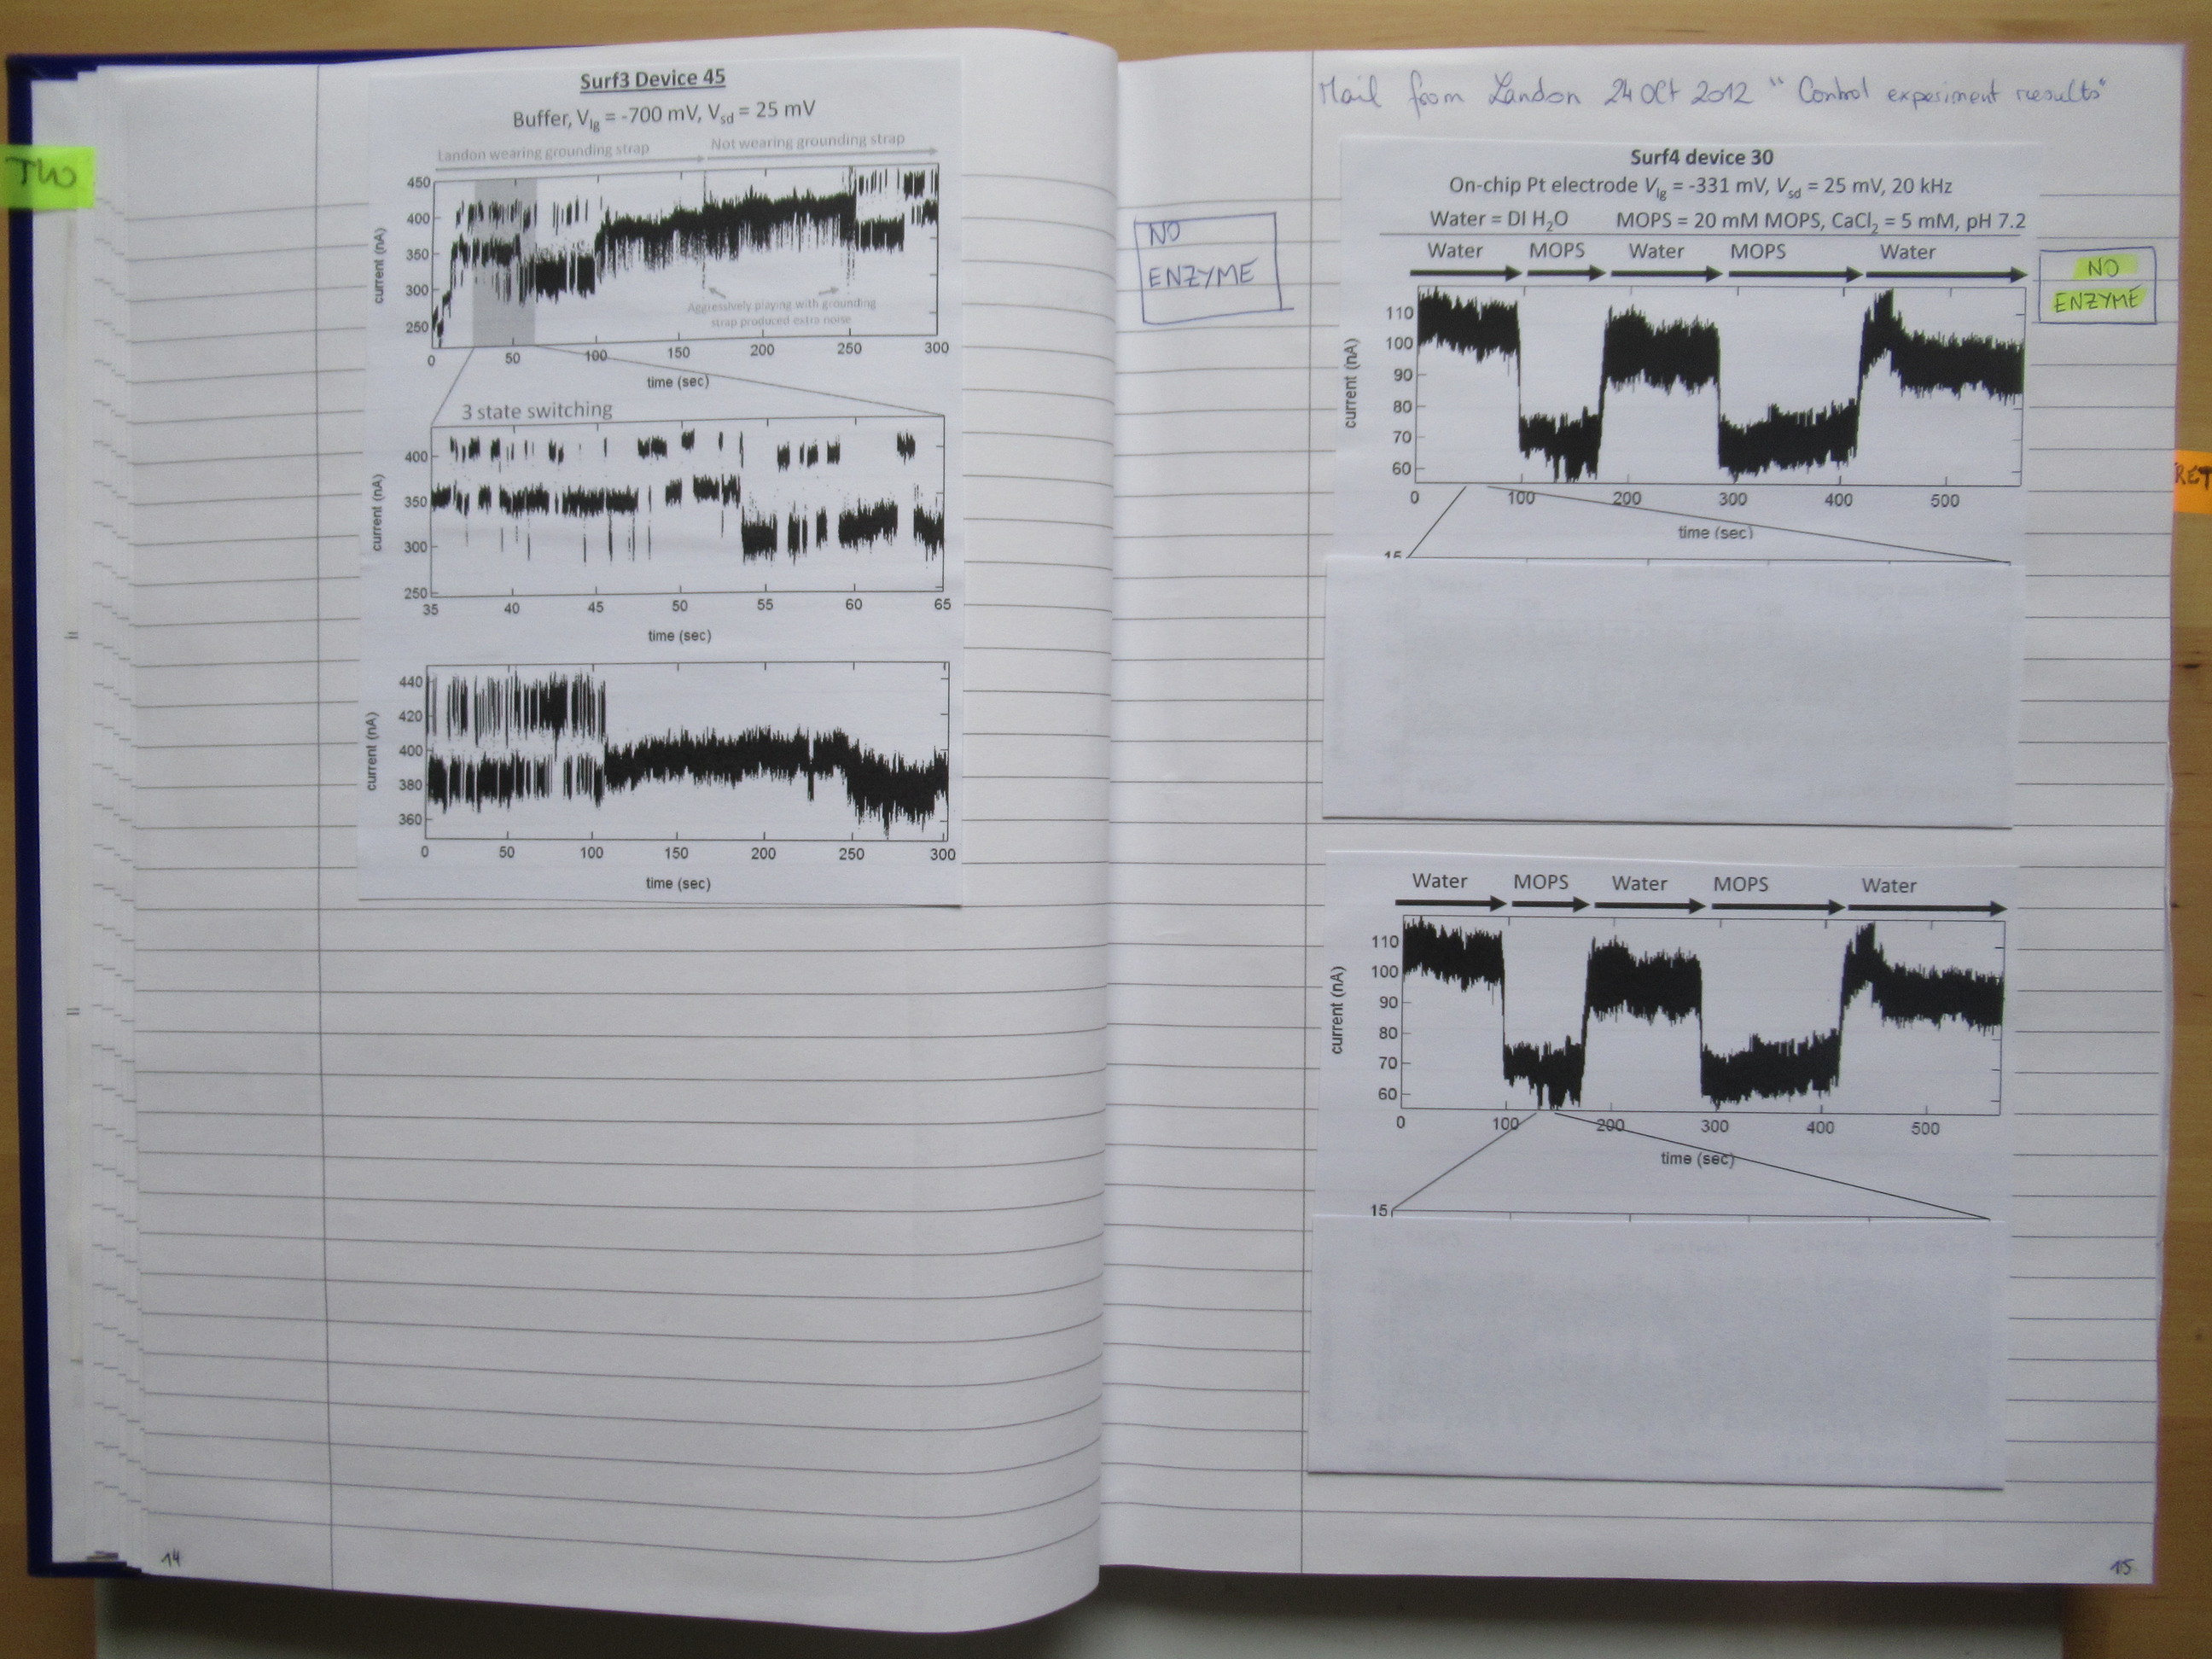 TWO
Surf3 Device 45
Buffer, Vlg = -700 mV, Vsd = 25 mV
Landon wearing grounding strap
Not wearing grounding strap
450
400
350
300
250
current (nA)
Aggressively playing with grounding
strap produced extra noise
0 50 100 150 200 250 300
time (sec)
3 state switching
400
350
300
250
current (nA)
35 40 45 50 55 60 65
time (sec)
440
420
400
380
360
current (nA)
0 50 100 150 200 250 300
time (sec)
14
Mail from Landon 24 Oct 2012 "Control experiment results"
NO
ENZYME
Surf4 device 30
On-chip Pt electrode Vlg = -331 mV, Vsd = 25 mV, 20 kHz
Water = DI H2O MOPS = 20 mM MOPS, CaCl2 = 5 mM, pH 7.2
Water MOPS Water MOPS Water
NO
ENZYME
110
100
90
80
70
60
current (nA)
0 100 200 300 400 500
time (sec)
15
Water MOPS Water MOPS Water
110
100
90
80
70
60
current (nA)
0 100 200 300 400 500
time (sec)
15
15